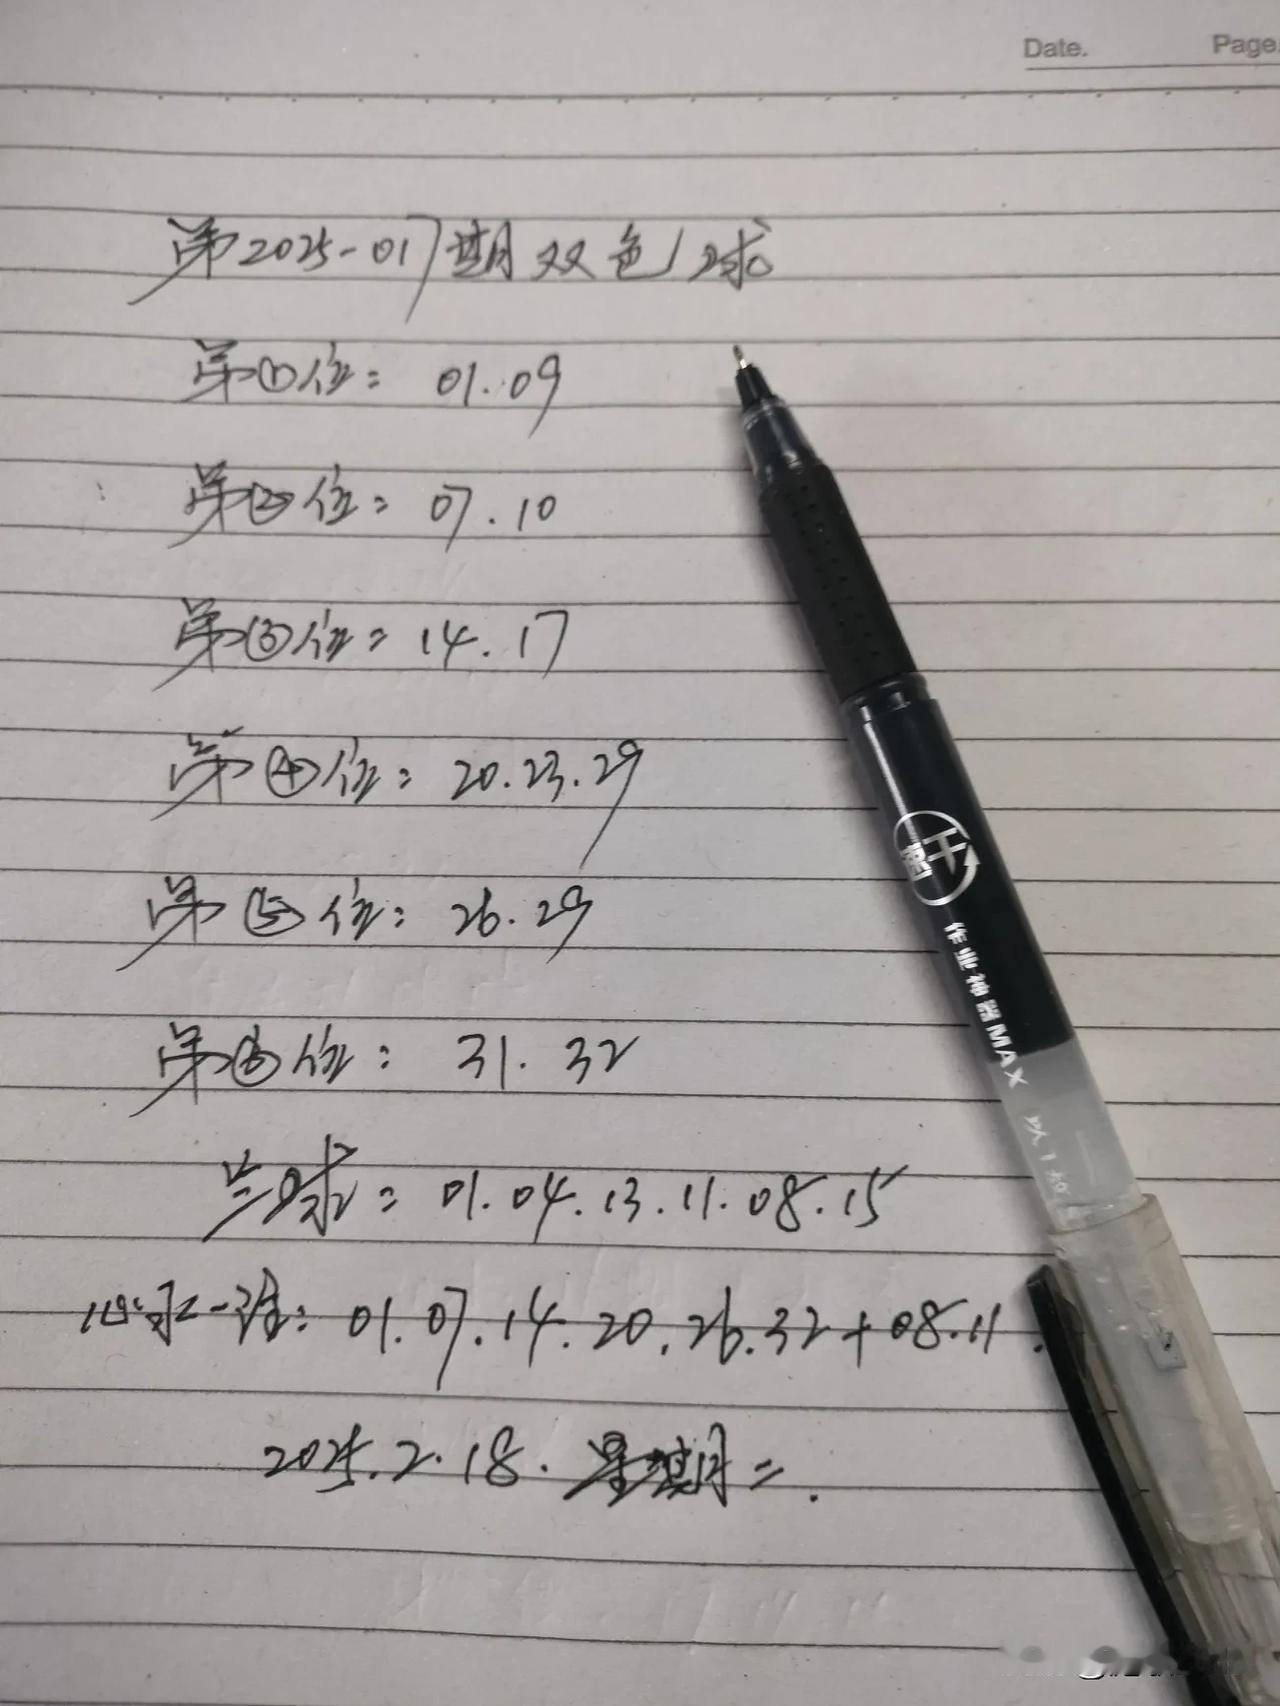 Date.
Page.
第2025-017期双色球
第①位：01.09
第②位：07.10
第③位：14.17
第④位：20.23.29
第⑤位：26.29
第⑥位：31.32
兰球：01.04.13.11.08.15
心水一注：01.07.14.20.26.32+08.11.
2025.2.18.星期二.
作业神器MAX